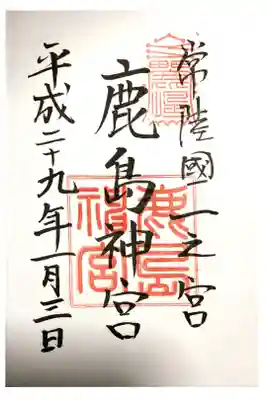 常陸國一之宮
鹿島神宮
平成二十九年一月三日
鹿島
神宮